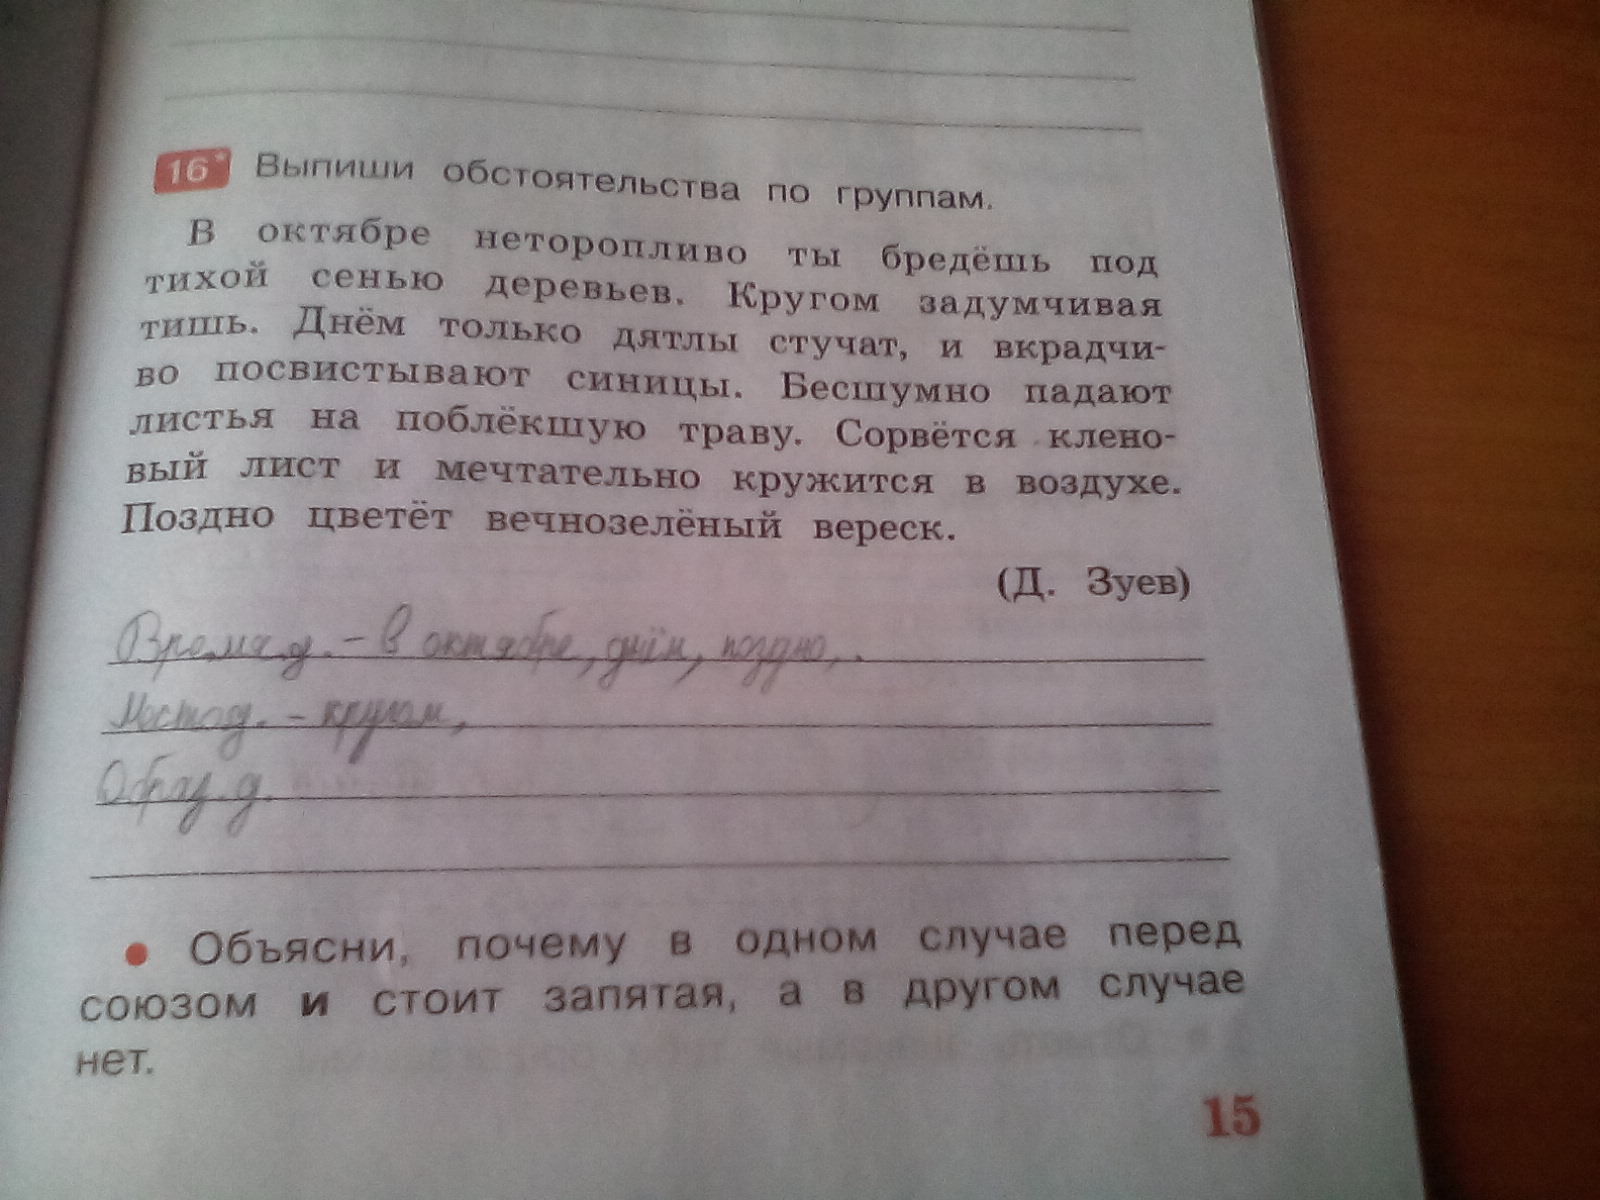 16* Выпиши обстоятельства по группам.
В октябре неторопливо ты бредёшь под
тихой сенью деревьев. Кругом задумчивая
тишь. Днём только дятлы стучат, и вкрадчи-
во посвистывают синицы. Бесшумно падают
листья на поблёкшую траву. Сорвётся клено-
вый лист и мечтательно кружится в воздухе.
Поздно цветёт вечнозелёный вереск.
(Д. Зуев)
Время д. - в октябре, днём, поздно,.
Место д. - кругом,
Образ. д.
• Объясни, почему в одном случае перед
союзом и стоит запятая, а в другом случае
нет.
15